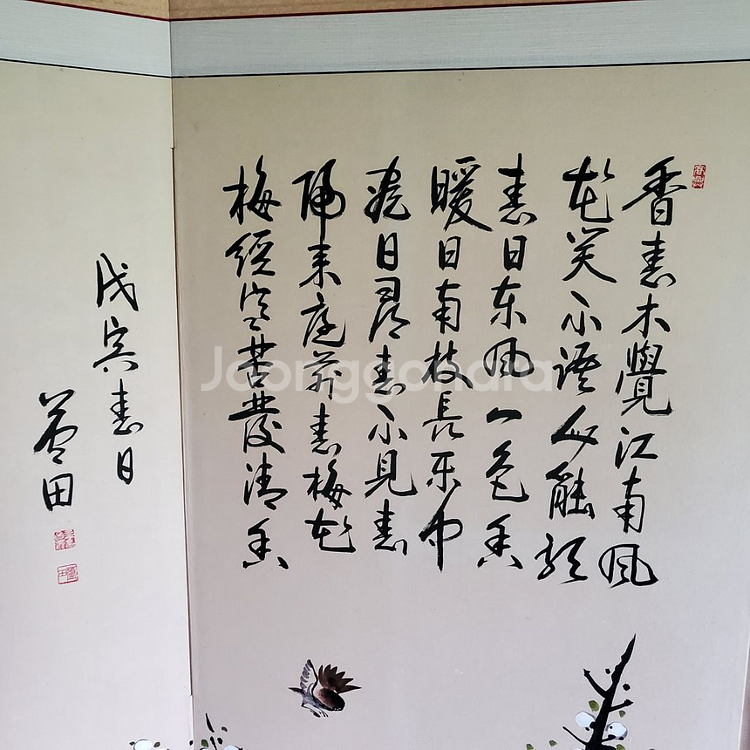 香春木覺江南風
花笑不語人能
春日东風一色香
暖日南枝長乐中
尽日尋春不見春
歸来庭前春梅花
梅經寒苦發清香
戊寅春日
田
Joonggonara